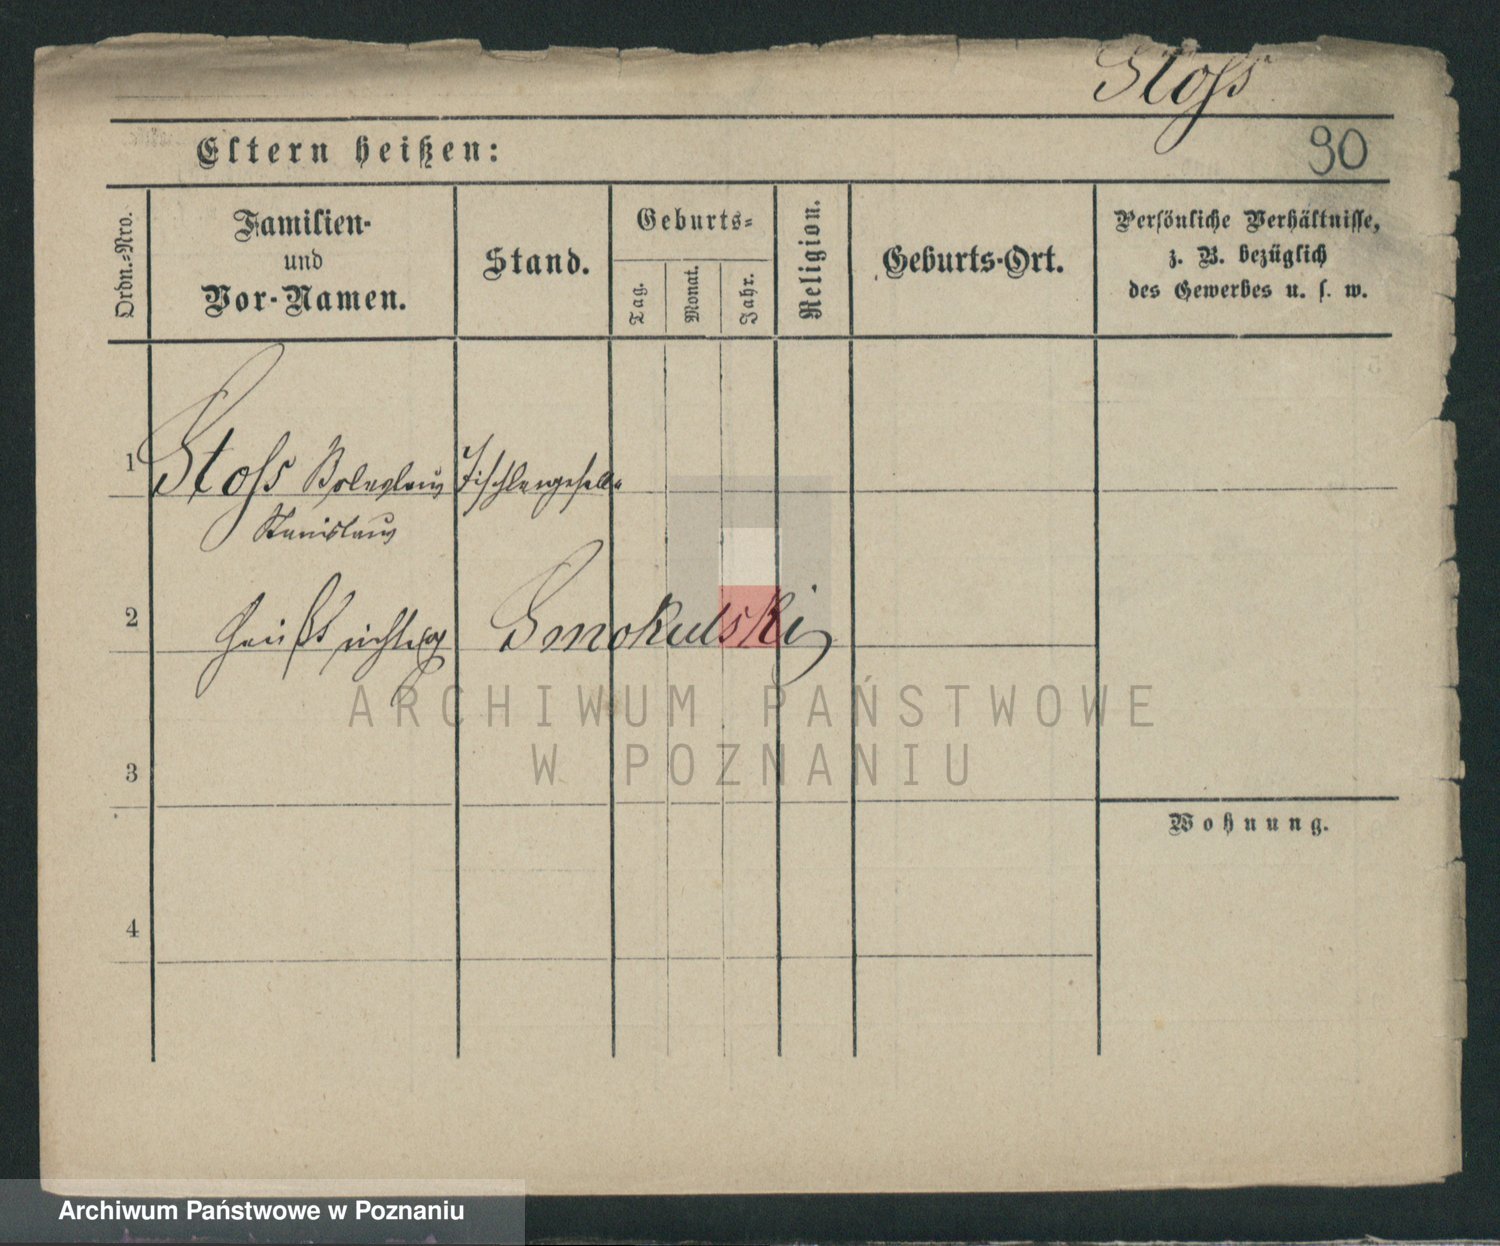 Stoss
Eltern heißen:
90
Ordn.-Nro.
Familien-
und
Vor-Namen.
Stand.
Geburts-
Tag.
Monat.
Jahr.
Religion.
Geburts-Ort.
Persönliche Verhältnisse,
z. B. bezüglich
des Gewerbes u. s. w.
1 Stoss Boleslaus Tischlergeselle
Stanislaus
2 heißt richtig Smokulski
ARCHIWUM PAŃSTWOWE
W POZNANIU
3
Wohnung.
4
Archiwum Państwowe w Poznaniu